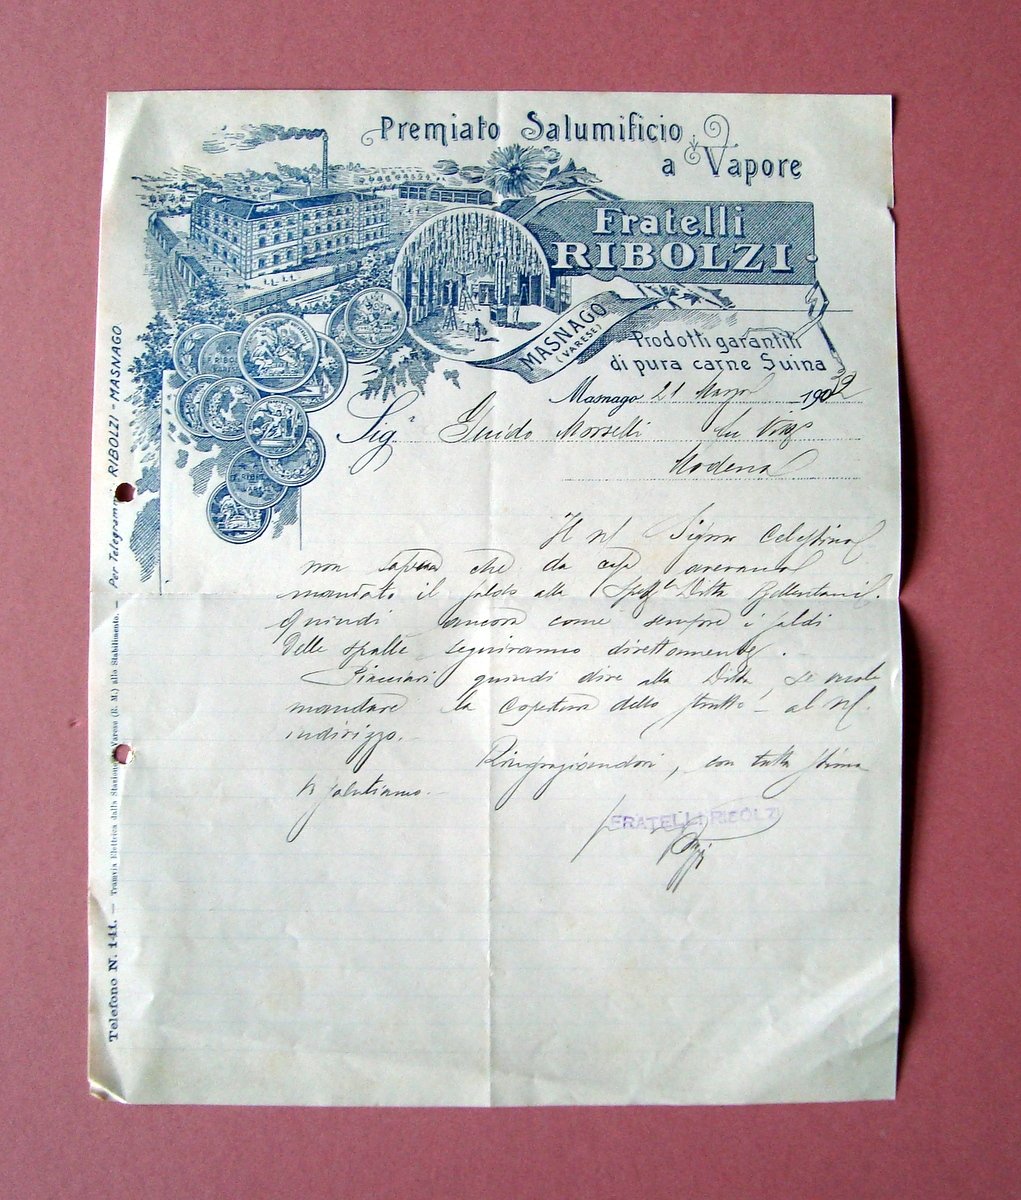 Premiato Salumificio
a Vapore
Fratelli
RIBOLZI
MASNAGO
(VARESE)
Prodotti garantiti
di pura carne Suina
Masnago 21 190
Sig.r Guido Morselli
Modena
Il Signor Celestino
non che da casa
mandato il saldo alla Ditta Bellentani.
Quindi ancora come sempre i saldi
delle spalle seguiranno direttamente.
quindi dire alla Ditta, se vuole
mandare la dello strutto al
indirizzo.
Ringraziandovi, con tutta stima
Vi salutiamo.
FRATELLI RIBOLZI
Telefono N. 141. — Tramvia Elettrica dalla Stazione Varese (R. M.) allo Stabilimento. — Per Telegrammi RIBOLZI - MASNAGO